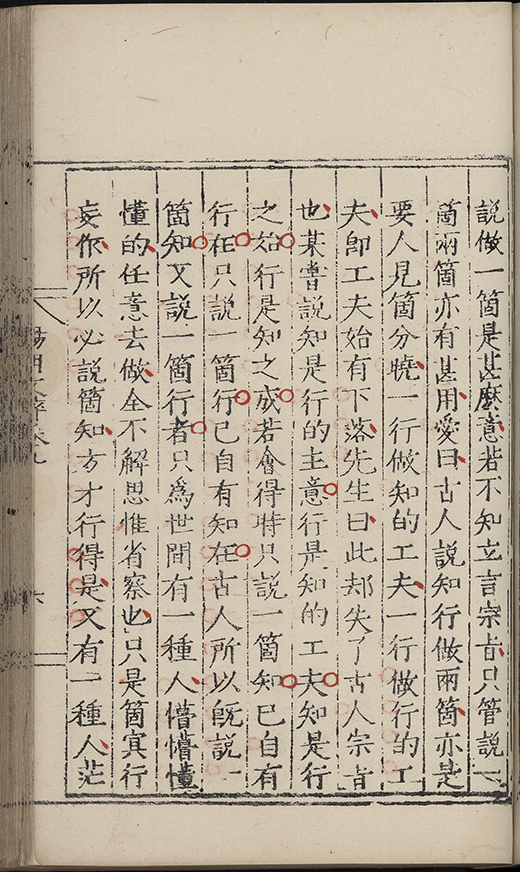 説做一箇是甚麽意若不知立言宗旨只管説一
箇兩箇亦有甚用愛曰古人説知行做兩箇亦是
要人見箇分曉一行做知的工夫一行做行的工
夫卽工夫始有下落先生曰此却失了古人宗旨
也某嘗説知是行的主意行是知的工夫知是行
之始行是知之成若會得時只説一箇知已自有
行在只説一箇行已自有知在古人所以旣説一
箇知又説一箇行者只爲世間有一種人懵懵懂
懂的任意去做全不解思惟省察也只是箇冥行
妄作所以必説箇知方才行得是又有一種人茫
六